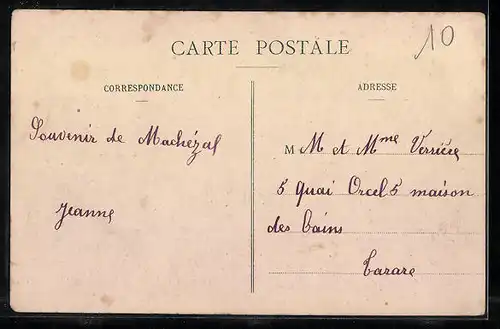 CARTE POSTALE
10
CORRESPONDANCE
ADRESSE
Souvenir de Machézal
Jeanne
M M et Mme Verrière
5 Quai Orcel 5 maison
des bains
Tarare